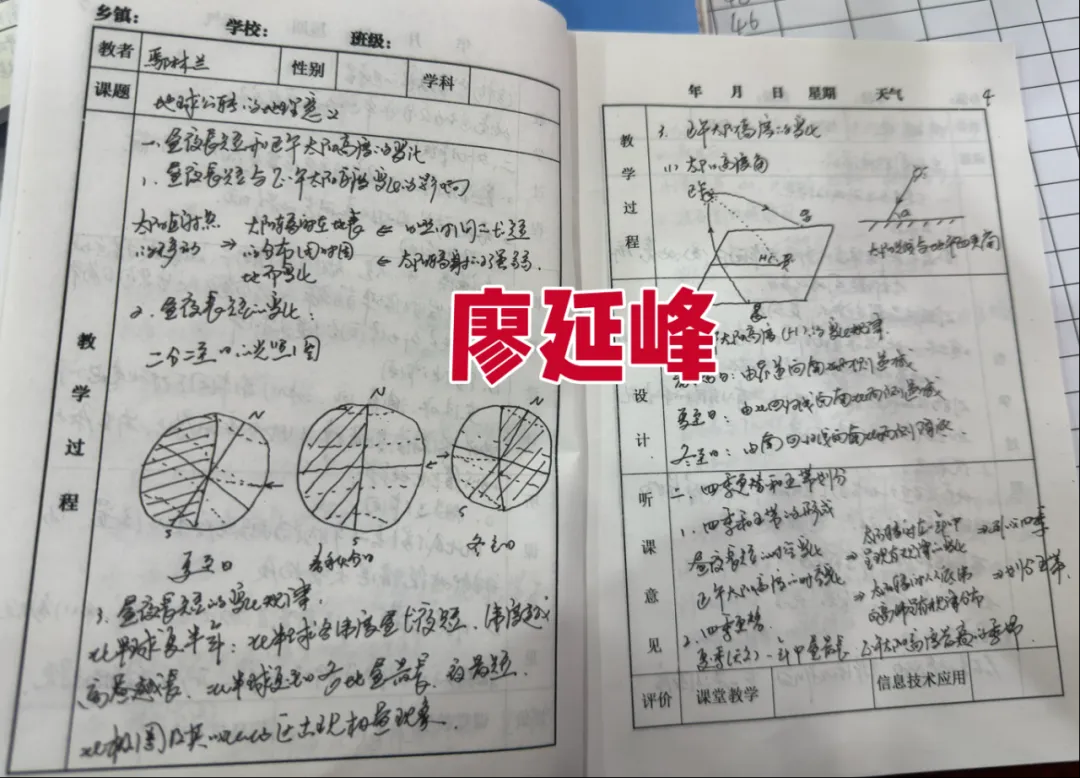 乡镇： 学校： 班级：
教者 鄢林兰 性别 学科
课题 地球公转的地理意义
教学过程
一、昼夜长短和正午太阳高度的变化
1、昼夜长短与正午太阳高度变化的影响
太阳直射点 太阳辐射在地表 ← 日照时间长短
的移动 ⇒ 的分布因时因 ← 太阳辐射的强弱.
地而变化
2、昼夜长短的变化：
二分二至日的光照图
N N N
S S
夏至日 春秋分日 冬至日
3、昼夜长短的变化规律：
北半球夏半年：北半球各纬度昼长夜短，纬度越
高昼越长。北半球夏至日各地昼最长，夜最短.
北极圈及其以北地区出现极昼现象.
年 月 日 星期 天气 4
教学过程
3、正午太阳高度的变化
(1) 太阳高度角
太阳光线与地平面夹角
廖延峰
太阳高度(H)的变化规律
日：由赤道向南北两侧递减
夏至日：由北回归线向南北两侧递减
冬至日：由南回归线向南北两侧递减.
设计
听课意见
二、四季更替和五带划分
1、四季和五带的形成
昼夜长短的时空变化
正午太阳高度的时空变化
2、四季更替
夏季(天文)：一年中昼最长，正午太阳高度最高的季节
评价 课堂教学 信息技术应用